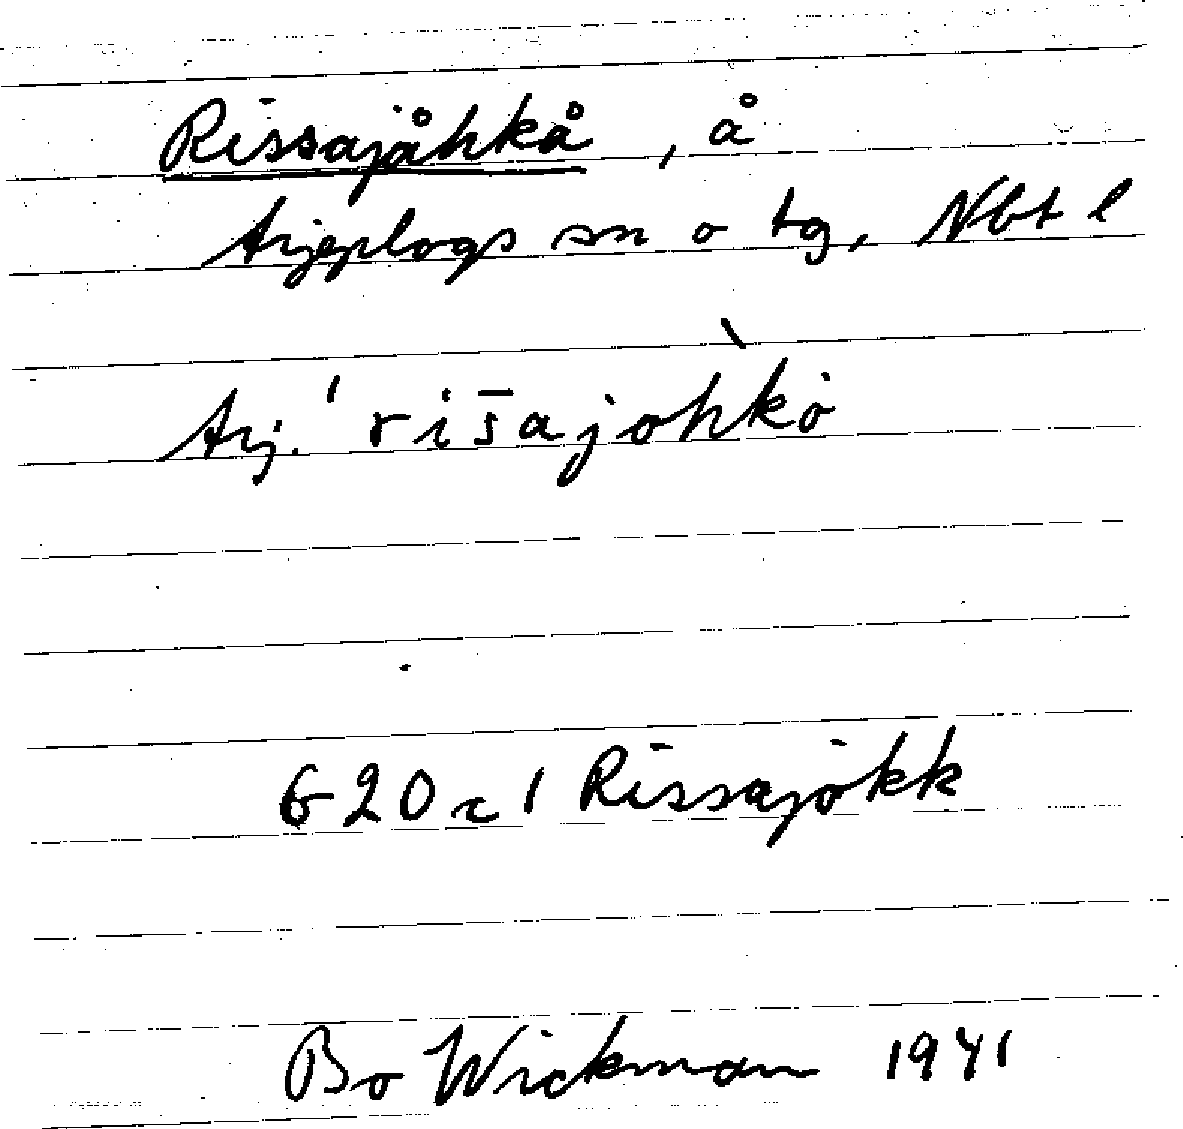 Rissajåhkå, å
Arjeplogs sn o tg, Nbt l
Arj. ˈris̄ajòhkȯ
G20c1 Rissajokk
Bo Wickman 1941